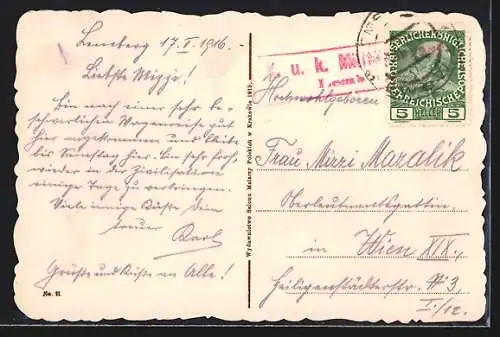 Lemberg 17. I. 1916.
Liebste Mizzi!
Bin nach einer sehr be-
schwerlichen Wagenreise gut
hier angekommen und bleibe
bis Samstag hier. Bin sehr froh,
wieder in der Zivilisation
einige Tage zu verbringen.
Viele innige Küsse Dein
treuer Karl
Grüsse und Küsse an Alle!
No. 11.
Wydawnictwo Salonu Malarzy Polskich w Krakowie 1915.
K. u. k. Milit
Lemb
KAISERLICHE KÖNIGLICHE
ÖSTERREICHISCHE POST
5 HELLER 5
Hochwohlgeboren
Frau Mizzi Maralik
Oberleutnantsgattin
in Wien XIX.,
Heiligenstädterstr. № 3
I./12.